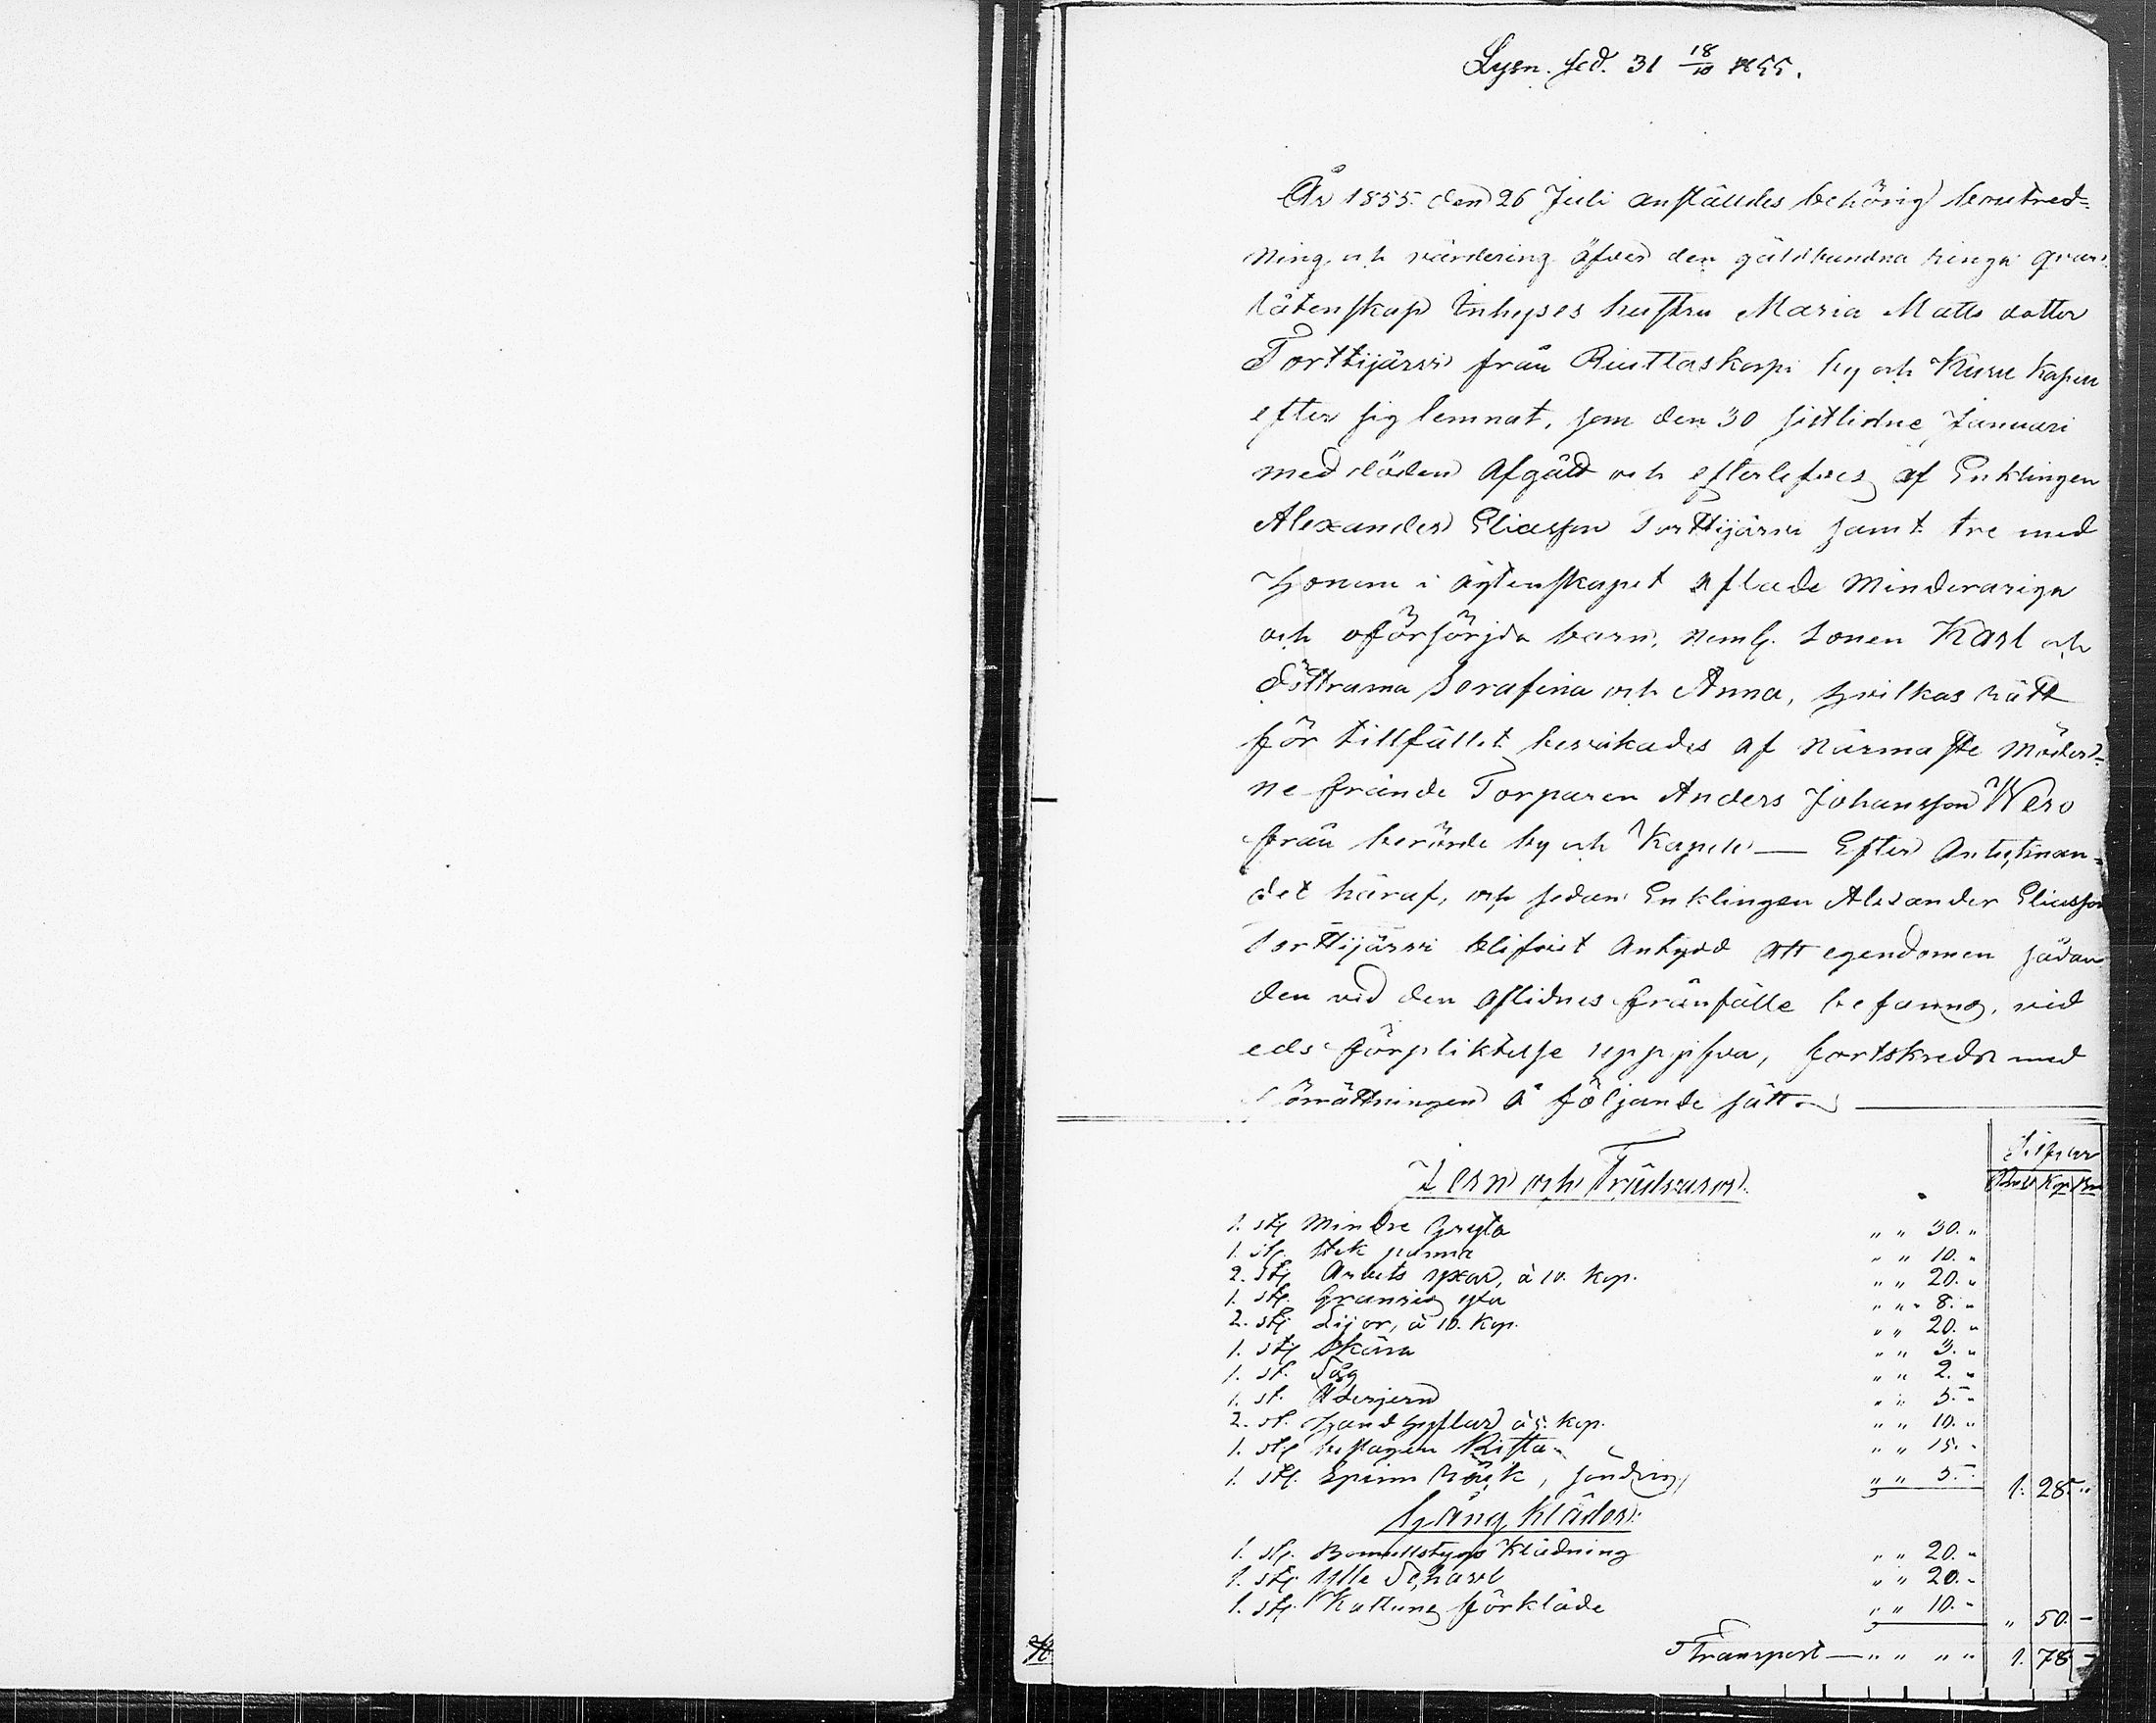 Lysn. fod. 31 18/10 1855.
År 1855 den 26 Juli anställdes behörig boutred-
ning och värdering öfver den gäldbundna ringa qvar-
låtenskap Inhyses hustru Maria Matts dotter
Torttijärvi från Riuttaskorpi by och Kuru Kapell
efter sig lemnat, som den 30 sistlidne Januari
med döden afgått och efterlefves af Enklingen
Alexander Eliasson Torttijärvi samt tre med
Honom i äktenskapet aflade Minderariga
och oförsörjda barn, neml. Sonen Karl och
döttrarna Serafina och Anna, hvilkas rätt
för tillfället bevakades af närmaste möder-
ne frände Torparen Anders Johansson Wero
från berörde by och Kapell — Efter Antecknan-
det häraf, och sedan Enklingen Alexander Eliasson
Torttijärvi blifvit Antydd att egendomen sådan
den vid den aflidnes frånfälle befanns, vid
eds förpliktelse uppgifva, fortskreds med
förrättningen å följande sätt.
Silfver
Rub Kop
Jern och Trädvaror.
1. st. Mindre Gryta " " 30. "
1. st. Stek panna " " 10. "
2. st. Arbets yxor, à 10. Kop. " " 20. "
1. st. yxa " " 8. "
2. st. Lijor, à 10. Kop. " " 20. "
1. st. Skära " " 3. "
1. st. Såg " " 2. "
1. st. " " 5. "
2. st. Hand hyflar à 5. kop. " " 10. "
1. st. beslagen Kista " " 15. "
1. st. Spinn råck, söndrig " " 5. " 1. 28. "
Gång kläder.
1. st. Bomullstygs Klädning " " 20. "
1. st. Ylle Schavl " " 20. "
1. st. Kattuns förkläde " " 10. " " 50. -
Transport — " " " " 1. 78 -